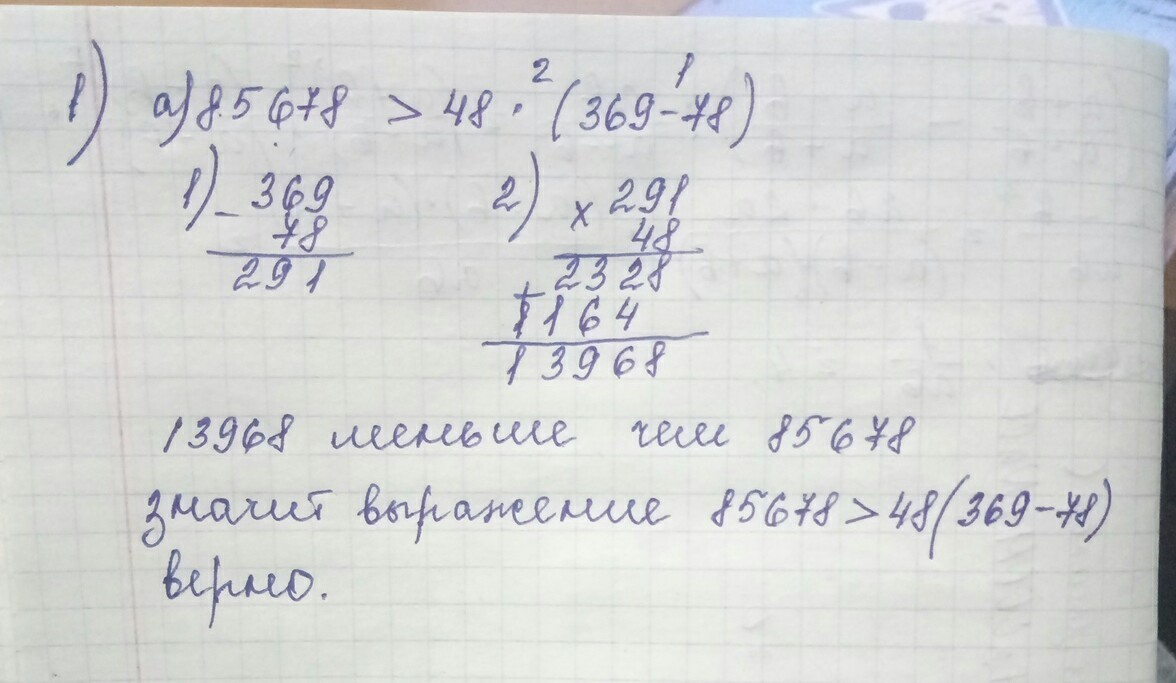 2 1
1) а) 85678 > 48 · (369-78)
1) - 369 2) x 291
78 48
291 2328
+ 1164
13968
13968 меньше чем 85678
значит выражение 85678>48(369-78)
верно.